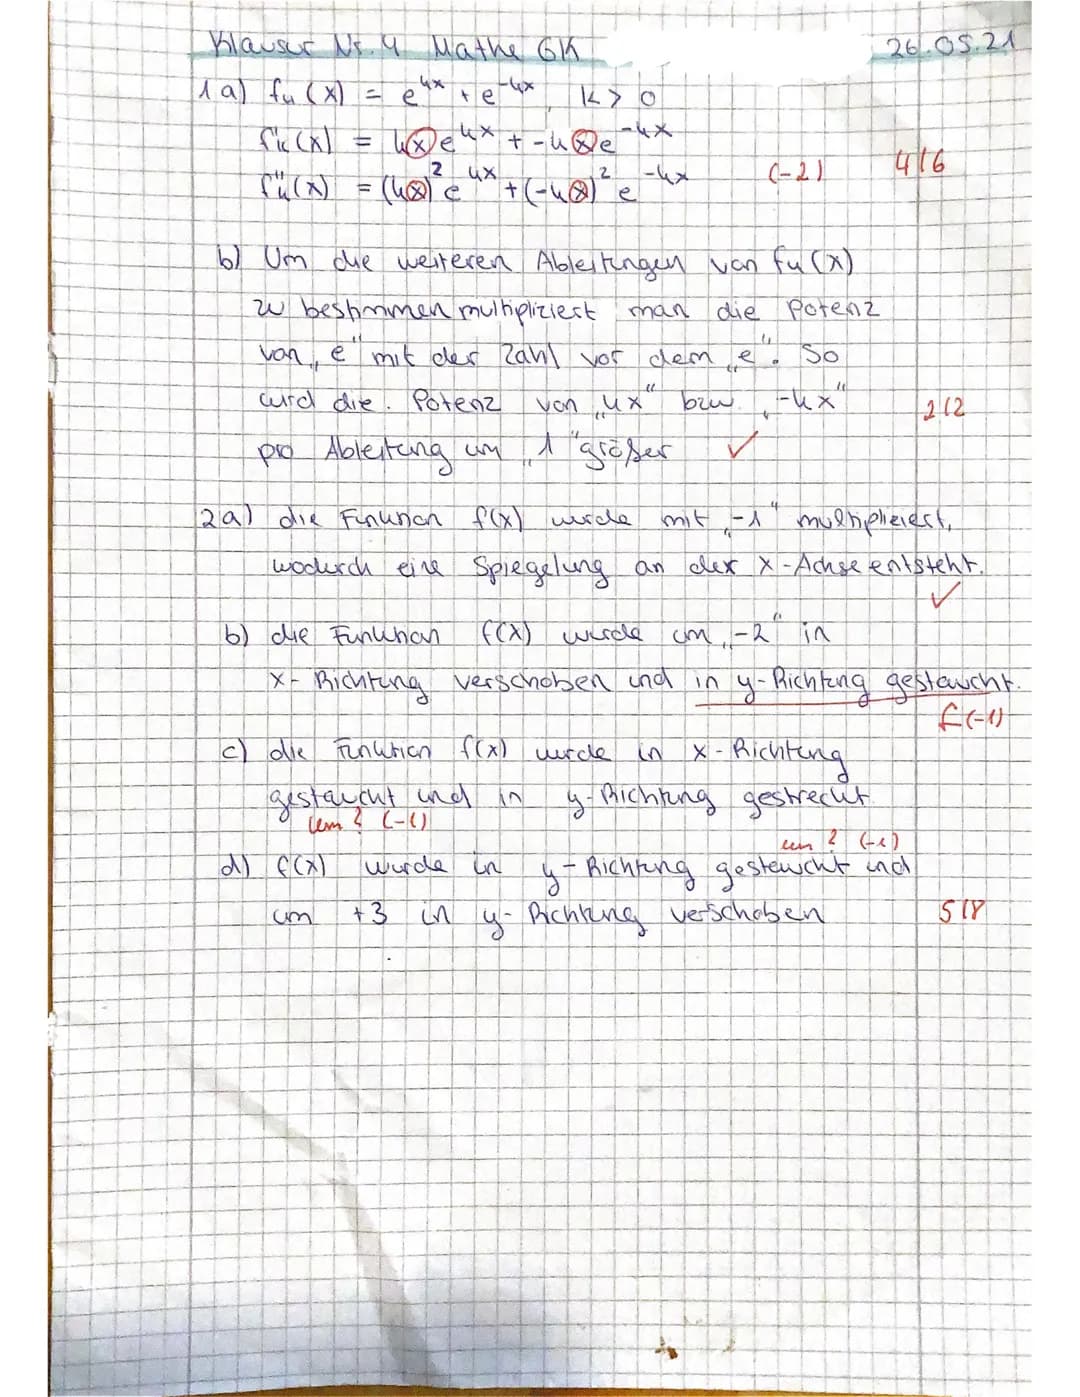 Klausur Nr. 4 Mathe GK 26.05.21
1a) fₖ(x) = e^kx + e^-kx, k > 0
f'ₖ(x) = kx e^kx + -kx e^-kx
f''ₖ(x) = (kx)² e^kx + (-kx)² e^-kx (-2) 4/6
b) Um die weiteren Ableitungen von fₖ(x)
zu bestimmen multipliziert man die Potenz
von „e" mit der Zahl vor dem „e". So
wird die Potenz von „kx" bzw. „-kx" 2/2
pro Ableitung um „1" größer ✓
2a) die Funktion f(x) wurde mit „-1" multipliziert,
wodurch eine Spiegelung an der x-Achse entsteht.
✓
b) die Funktion f(x) wurde um „-2" in
x-Richtung verschoben und in y-Richtung gestaucht.
f(-1)
c) die Funktion f(x) wurde in x-Richtung
gestaucht und in y-Richtung gestreckt
um? (-1)
um? (-1)
d) f(x) wurde in y-Richtung gestaucht und
um +3 in y-Richtung verschoben 5/8